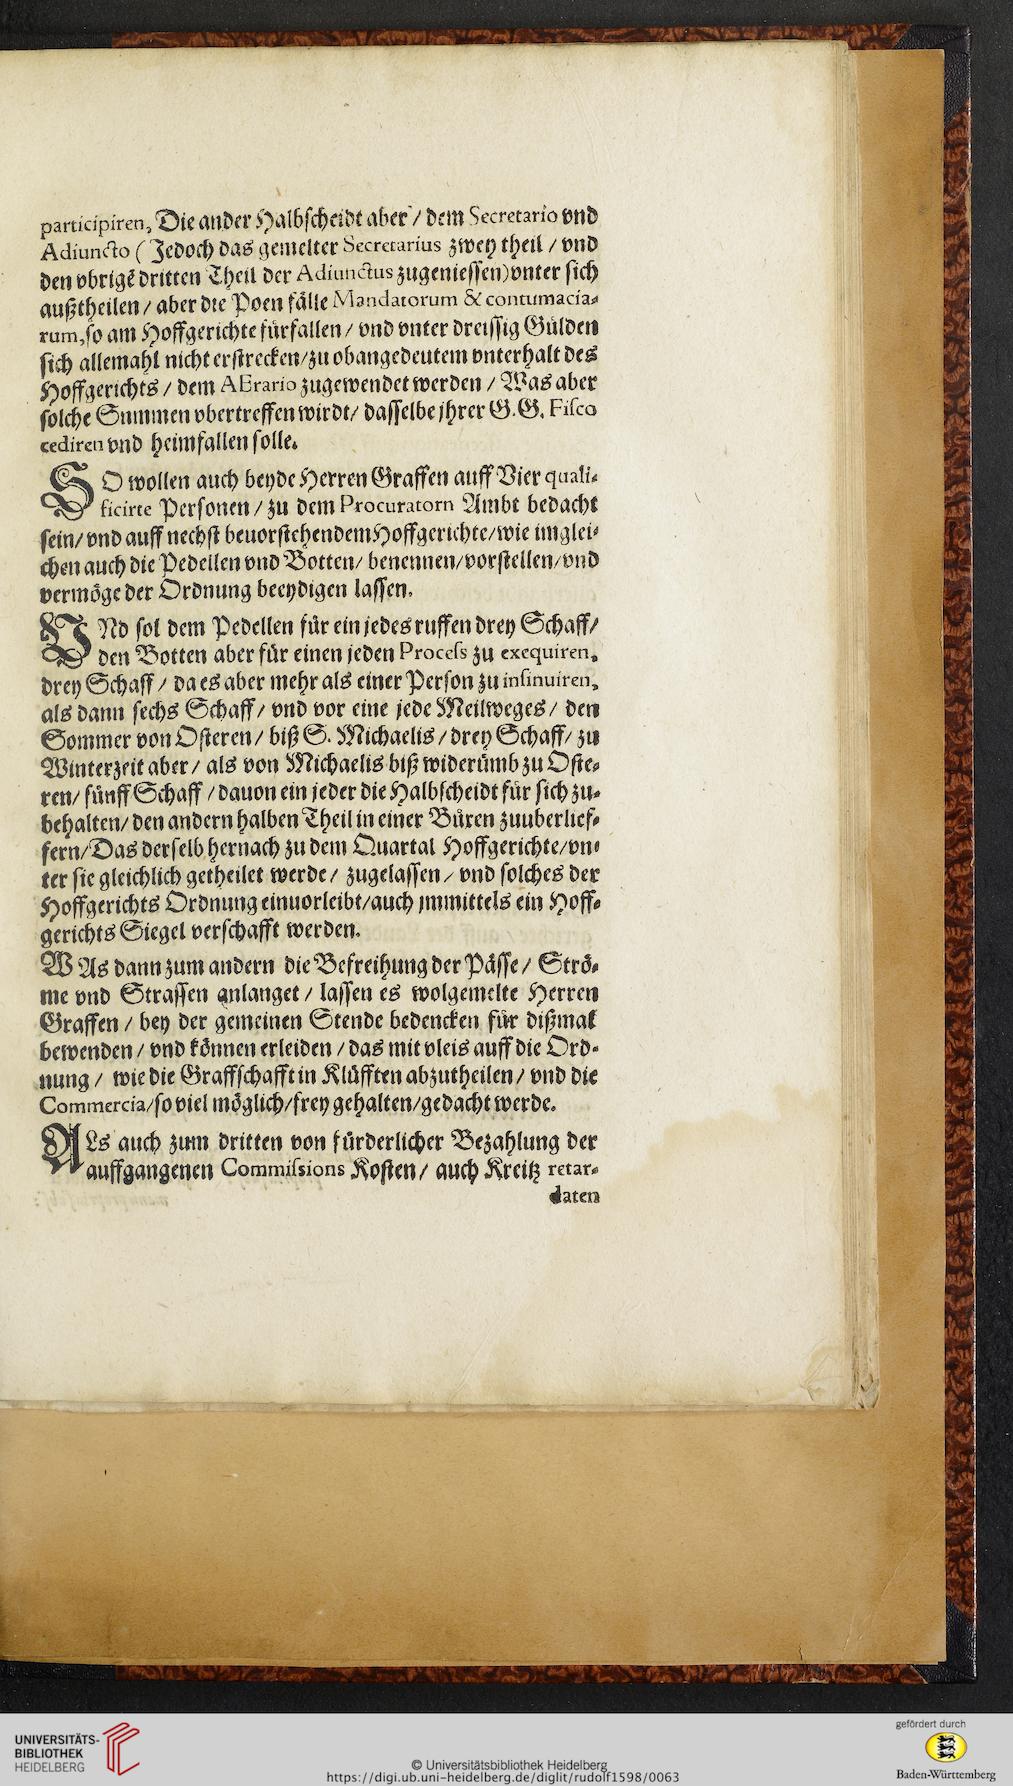 participiren, Die ander Halbscheidt aber / dem Secretario vnd
Adiuncto ( Jedoch das gemelter Secretarius zwey theil / vnd
den vbrigē dritten Theil der Adiunctus zugeniessen) vnter sich
außtheilen / aber die Poen fälle Mandatorum & contumacia-
rum, so am Hoffgerichte fürfallen / vnd vnter dreissig Gülden
sich allemahl nicht erstrecken / zu obangedeutem vnterhalt des
Hoffgerichts / dem AErario zugewendet werden / Was aber
solche Summen vbertreffen wirdt / dasselbe jhrer G. G. Fisco
cediren vnd heimfallen solle.
SO wollen auch beyde Herren Graffen auff Vier quali-
ficirte Personen / zu dem Procuratorn Ambt bedacht
sein / vnd auff nechst beuorstehendem Hoffgerichte / wie imglei-
chen auch die Pedellen vnd Botten / benennen / vorstellen / vnd
vermöge der Ordnung beeydigen lassen.
VNd sol dem Pedellen für ein jedes ruffen drey Schaff /
den Botten aber für einen jeden Process zu exequiren,
drey Schaff / da es aber mehr als einer Person zu insinuiren,
als dann sechs Schaff / vnd vor eine jede Meilweges / den
Sommer von Osteren / biß S. Michaelis / drey Schaff / zu
Winterzeit aber / als von Michaelis biß widerümb zu Oste-
ren / fünff Schaff / dauon ein jeder die Halbscheidt für sich zu-
behalten / den andern halben Theil in einer Büxen zuuberlief-
fern / Das derselb hernach zu dem Quartal Hoffgerichte / vn-
ter sie gleichlich getheilet werde / zugelassen / vnd solches der
Hoffgerichts Ordnung einuorleibt / auch jmmittels ein Hoff-
gerichts Siegel verschafft werden.
WAs dann zum andern die Befreihung der Pässe / Strö-
me vnd Strassen anlanget / lassen es wolgemelte Herren
Graffen / bey der gemeinen Stende bedencken für dißmal
bewenden / vnd können erleiden / das mit vleis auff die Ord-
nung / wie die Graffschafft in Klüfften abzutheilen / vnd die
Commercia / so viel möglich / frey gehalten / gedacht werde.
ALs auch zum dritten von fürderlicher Bezahlung der
auffgangenen Commissions Kosten / auch Kreitz retar-
daten
UNIVERSITÄTS-
BIBLIOTHEK
HEIDELBERG
© Universitätsbibliothek Heidelberg
https://digi.ub.uni-heidelberg.de/diglit/rudolf1598/0063
gefördert durch
Baden-Württemberg